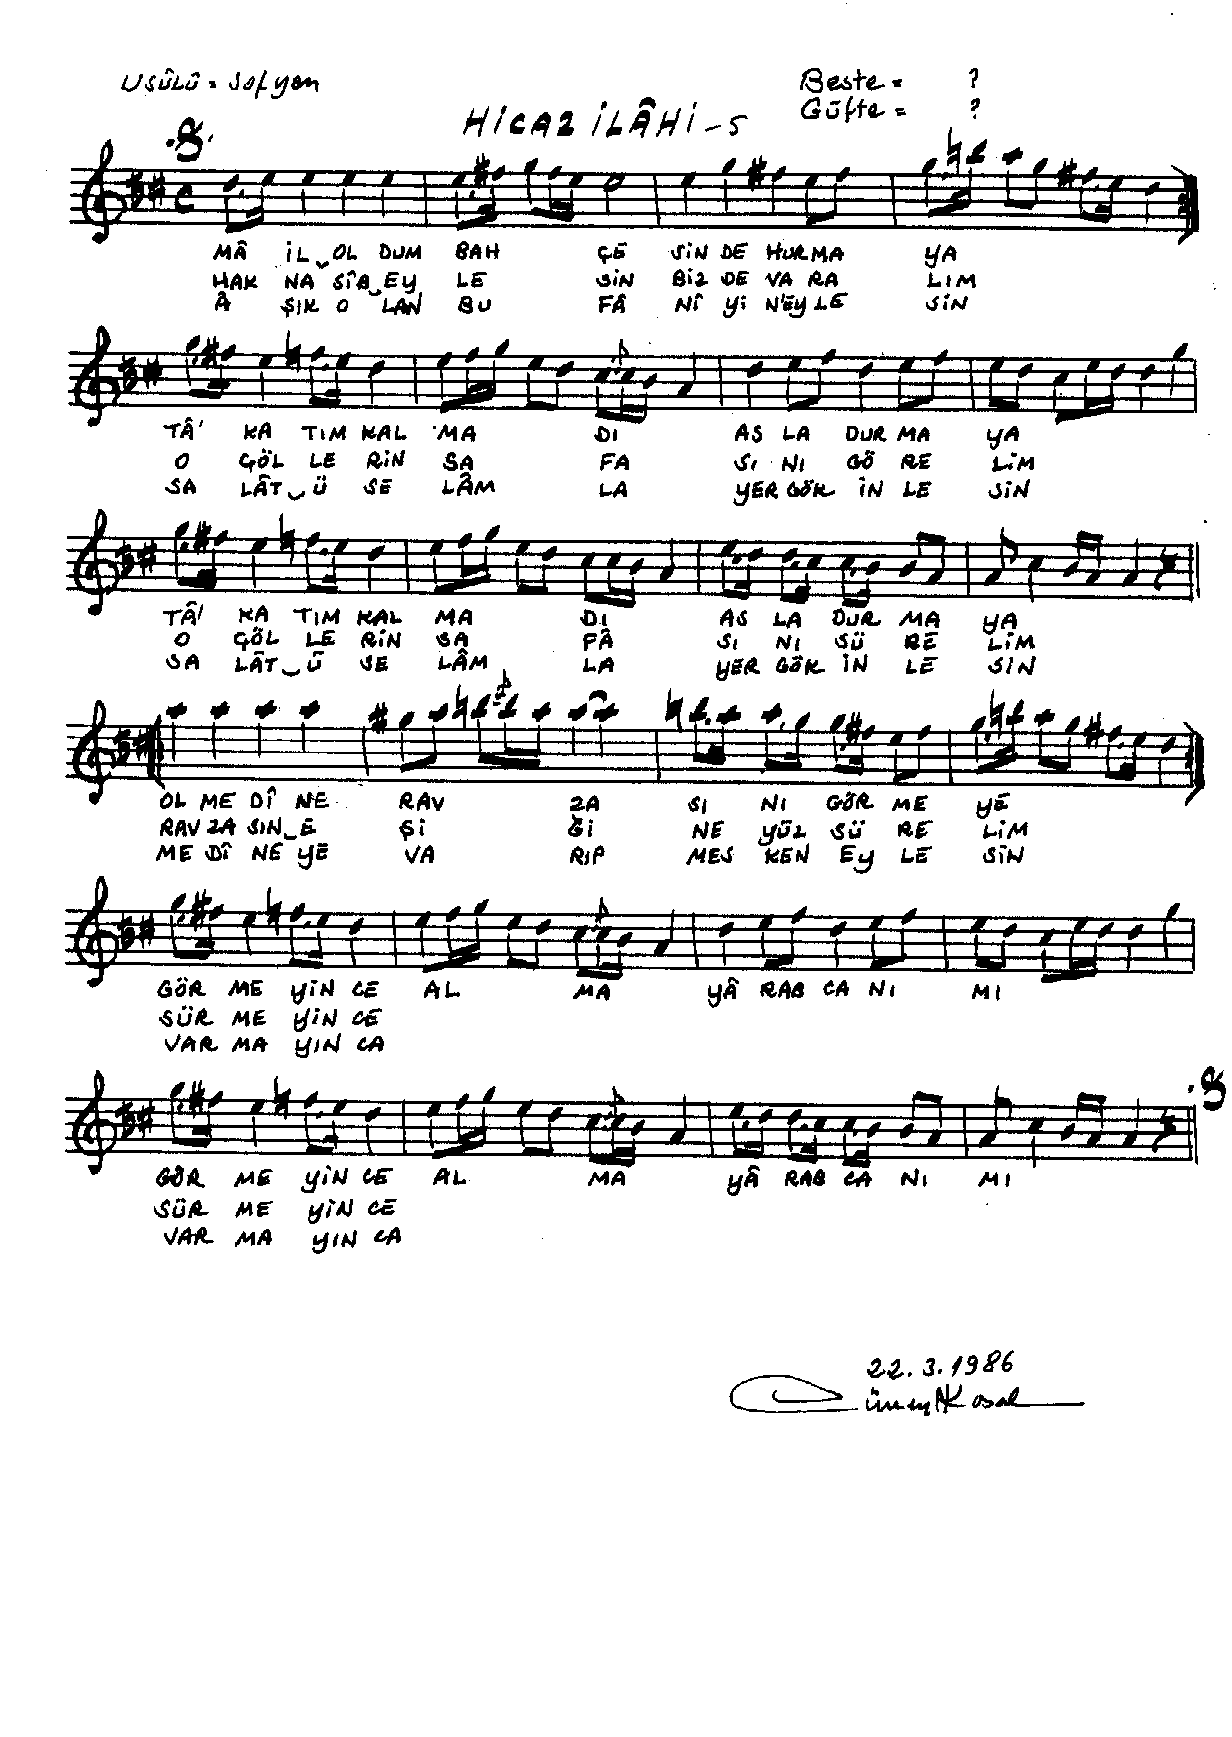 USÛLÛ = Sofyan
Beste = ?
HİCAZ İLÂHİ - 5
Güfte = ?
MÂ İL OL DUM BAH ÇE SİN DE HURMA YA
HAK NA SÎB EY LE SİN BİZ DE VA RA LIM
Â ŞIK O LAN BU FÂ NÎ Yİ N'EYLE SİN
TÂ' KA TIM KAL MA DI AS LA DUR MA YA
O GÖL LE RİN SA FA SI NI GÖ RE LİM
SA LÂT Ü SE LÂM LA YER GÖK İN LE SİN
TÂ' KA TIM KAL MA DI AS LA DUR MA YA
O GÖL LE RİN SA FÂ SI NI SÜ RE LİM
SA LÂT Ü SE LÂM LA YER GÖK İN LE SİN
OL ME DÎ NE RAV ZA SI NI GÖR ME YE
RAV ZA SIN E Şİ Ğİ NE YÜZ SÜ RE LİM
ME DÎ NE YE VA RIP MES KEN EY LE SİN
GÖR ME YİN CE AL MA YÂ RAB CA NI MI
SÜR ME YİN CE
VAR MA YIN CA
GÖR ME YİN CE AL MA YÂ RAB CA NI MI
SÜR ME YİN CE
VAR MA YIN CA
22.3.1986
Cüneyt Kosal